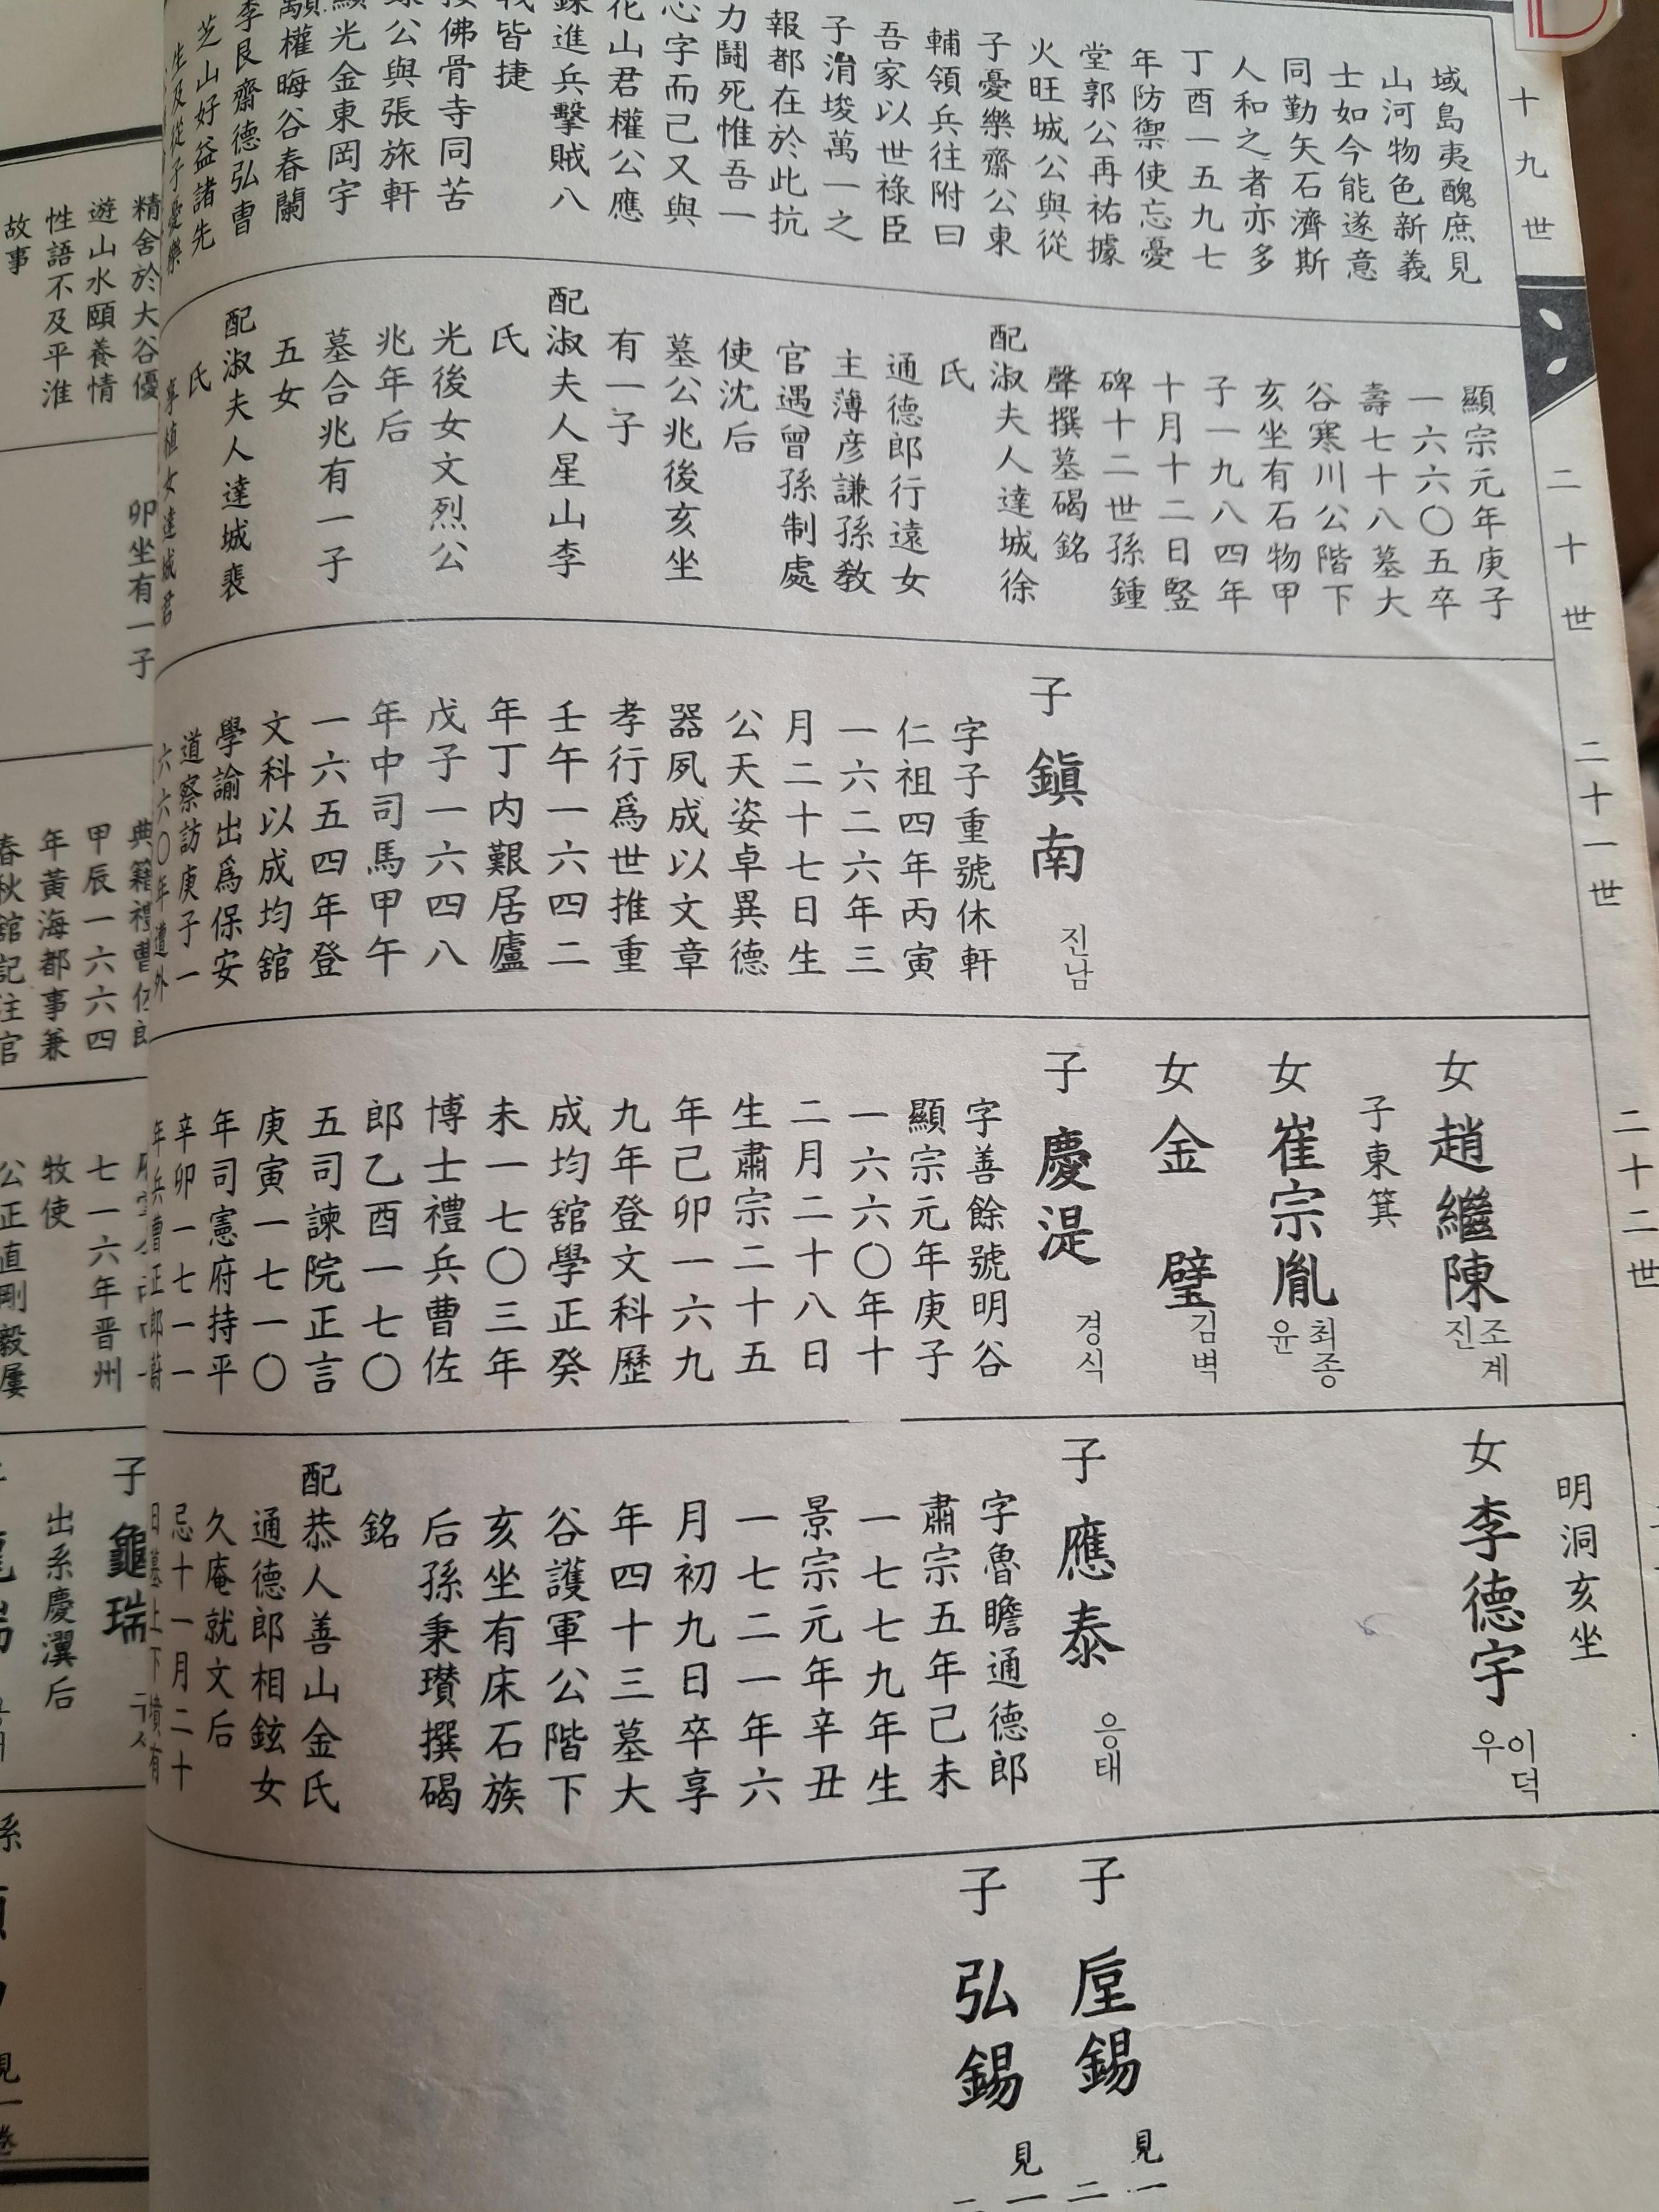 十九世
域島夷醜庶見
山河物色新義
士如今能遂意
同勤矢石濟斯
人和之者亦多
丁酉一五九七
年防禦使忘憂
堂郭公再祐據
火旺城公與從
子憂樂齋公東
輔領兵往附曰
吾家以世祿臣
子涓埈萬一之
報都在於此抗
力鬪死惟吾一
心字而己又與
花山君權公應
銖進兵擊賊八
戰皆捷
佛骨寺同苦
公與張旅軒
顯光金東岡宇
顒權晦谷春蘭
李艮齋德弘曺
芝山好益諸先
生及從子憂樂
二十世
顯宗元年庚子
一六六〇五卒
壽七十八墓大
谷寒川公階下
亥坐有石物甲
子一九八四年
十月十二日竪
碑十二世孫鍾
聲撰墓碣銘
配淑夫人達城徐
氏
通德郎行遠女
主薄彦謙孫敎
官遇曾孫制處
使沈后
墓公兆後亥坐
有一子
配淑夫人星山李
氏
光後女文烈公
兆年后
墓合兆有一子
五女
配淑夫人達城裵
氏
二十一世
子 鎭南 진남
字子重號休軒
仁祖四年丙寅
一六二六年三
月二十七日生
公天姿卓異德
器夙成以文章
孝行爲世推重
壬午一六四二
年丁内艱居廬
戊子一六四八
年中司馬甲午
一六五四年登
文科以成均舘
學諭出爲保安
道察訪庚子一
六六〇年遭外
二十二世
女 趙繼陳 조계진
子東箕
女 崔宗胤 최종윤
女 金璧 김벽
子 慶湜 경식
字善餘號明谷
顯宗元年庚子
一六六〇年十
二月二十八日
生肅宗二十五
年己卯一六九
九年登文科歷
成均舘學正癸
未一七〇三年
博士禮兵曹佐
郎乙酉一七〇
五司諫院正言
庚寅一七一〇
年司憲府持平
辛卯一七一一
年兵曹正郎蔚
明洞亥坐
女 李德宇 이덕우
子 應泰 응태
字魯瞻通德郎
肅宗五年己未
一七七九年生
景宗元年辛丑
一七二一年六
月初九日卒享
年四十三墓大
谷護軍公階下
亥坐有床石族
后孫秉瓚撰碣
銘
配恭人善山金氏
通德郎相鉉女
久庵就文后
忌十一月二十
日墓上下墳有
子 垕錫 見一
子 弘錫 見一
精舍於大谷優
遊山水頤養情
性語不及平淮
故事
卯坐有一子
典籍禮曹佐郎
甲辰一六六四
年黃海都事兼
春秋舘記注官
七一六年晋州
牧使
公正直剛毅屢
子 龜瑞
出系慶瀷后